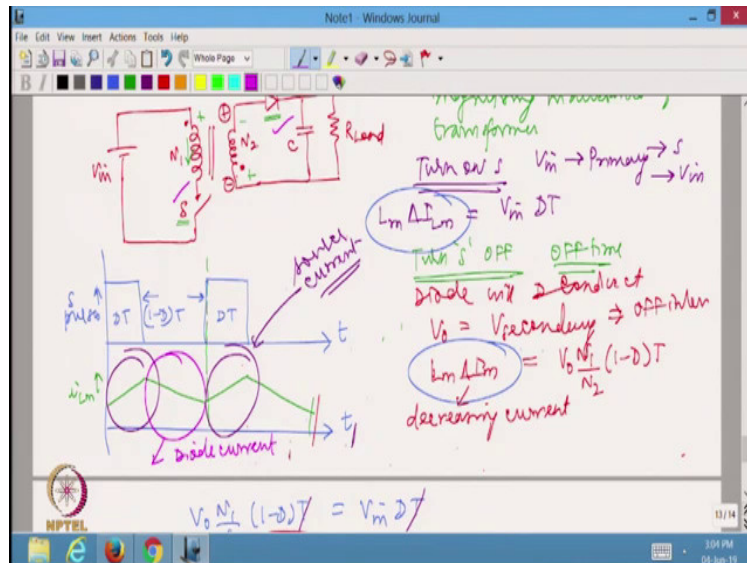 Note1 - Windows Journal
File Edit View Insert Actions Tools Help
Whole Page
B I
magnetizing inductance of
transformer
Vin
N1
N2
C
RLoad
S
Turn on S Vin → Primary → S
→ Vin
Lm ΔILm = Vin DT
Turn 'S' OFF Off-time
Diode will conduct
Vo = Vsecondary ⇒ Off inter
Lm ΔIm = Vo N1/N2 (1-D)T
decreasing current
source
current
S
pulse
DT (1-D)T DT
t
iLm
t
Diode current
Vo N1 (1-D)T = Vin DT
NPTEL
13/14
3:04 PM
04-Jun-19